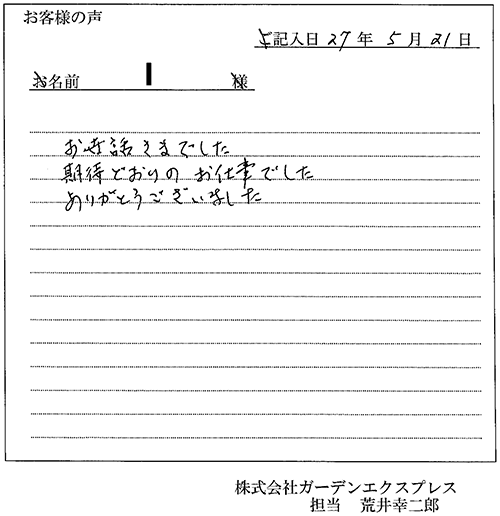 お客様の声
ご記入日 27 年 5 月 21 日
お名前 様
お世話さまでした
期待どおりの お仕事でした
ありがとうございました
株式会社ガーデンエクスプレス
担当 荒井幸二郎